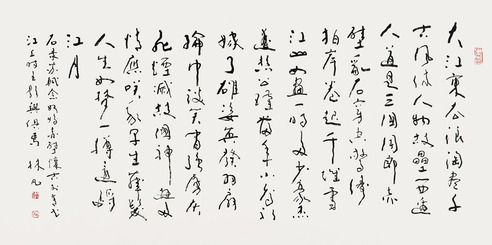 大江東去浪淘盡千
古風流人物故壘西邊
人道是三國周郎赤
壁亂石穿空驚濤
拍岸卷起千堆雪
江山如畫一時多少豪杰
遙想公瑾當年小喬初
嫁了雄姿英發羽扇
綸巾談笑間強虜灰
飛煙滅故國神遊多
情應笑我早生華髮
人生如夢一樽還酹
江月
右東坡念奴嬌赤壁懷古
江上時 林凡